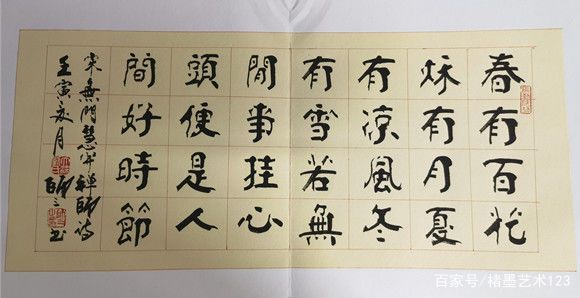 春有百花
秋有月夏
有涼風冬
有雪若無
閒事挂心
頭便是人
間好時節
宋無門慧開禪師詩
壬寅夏月
百家号/楮墨艺术123